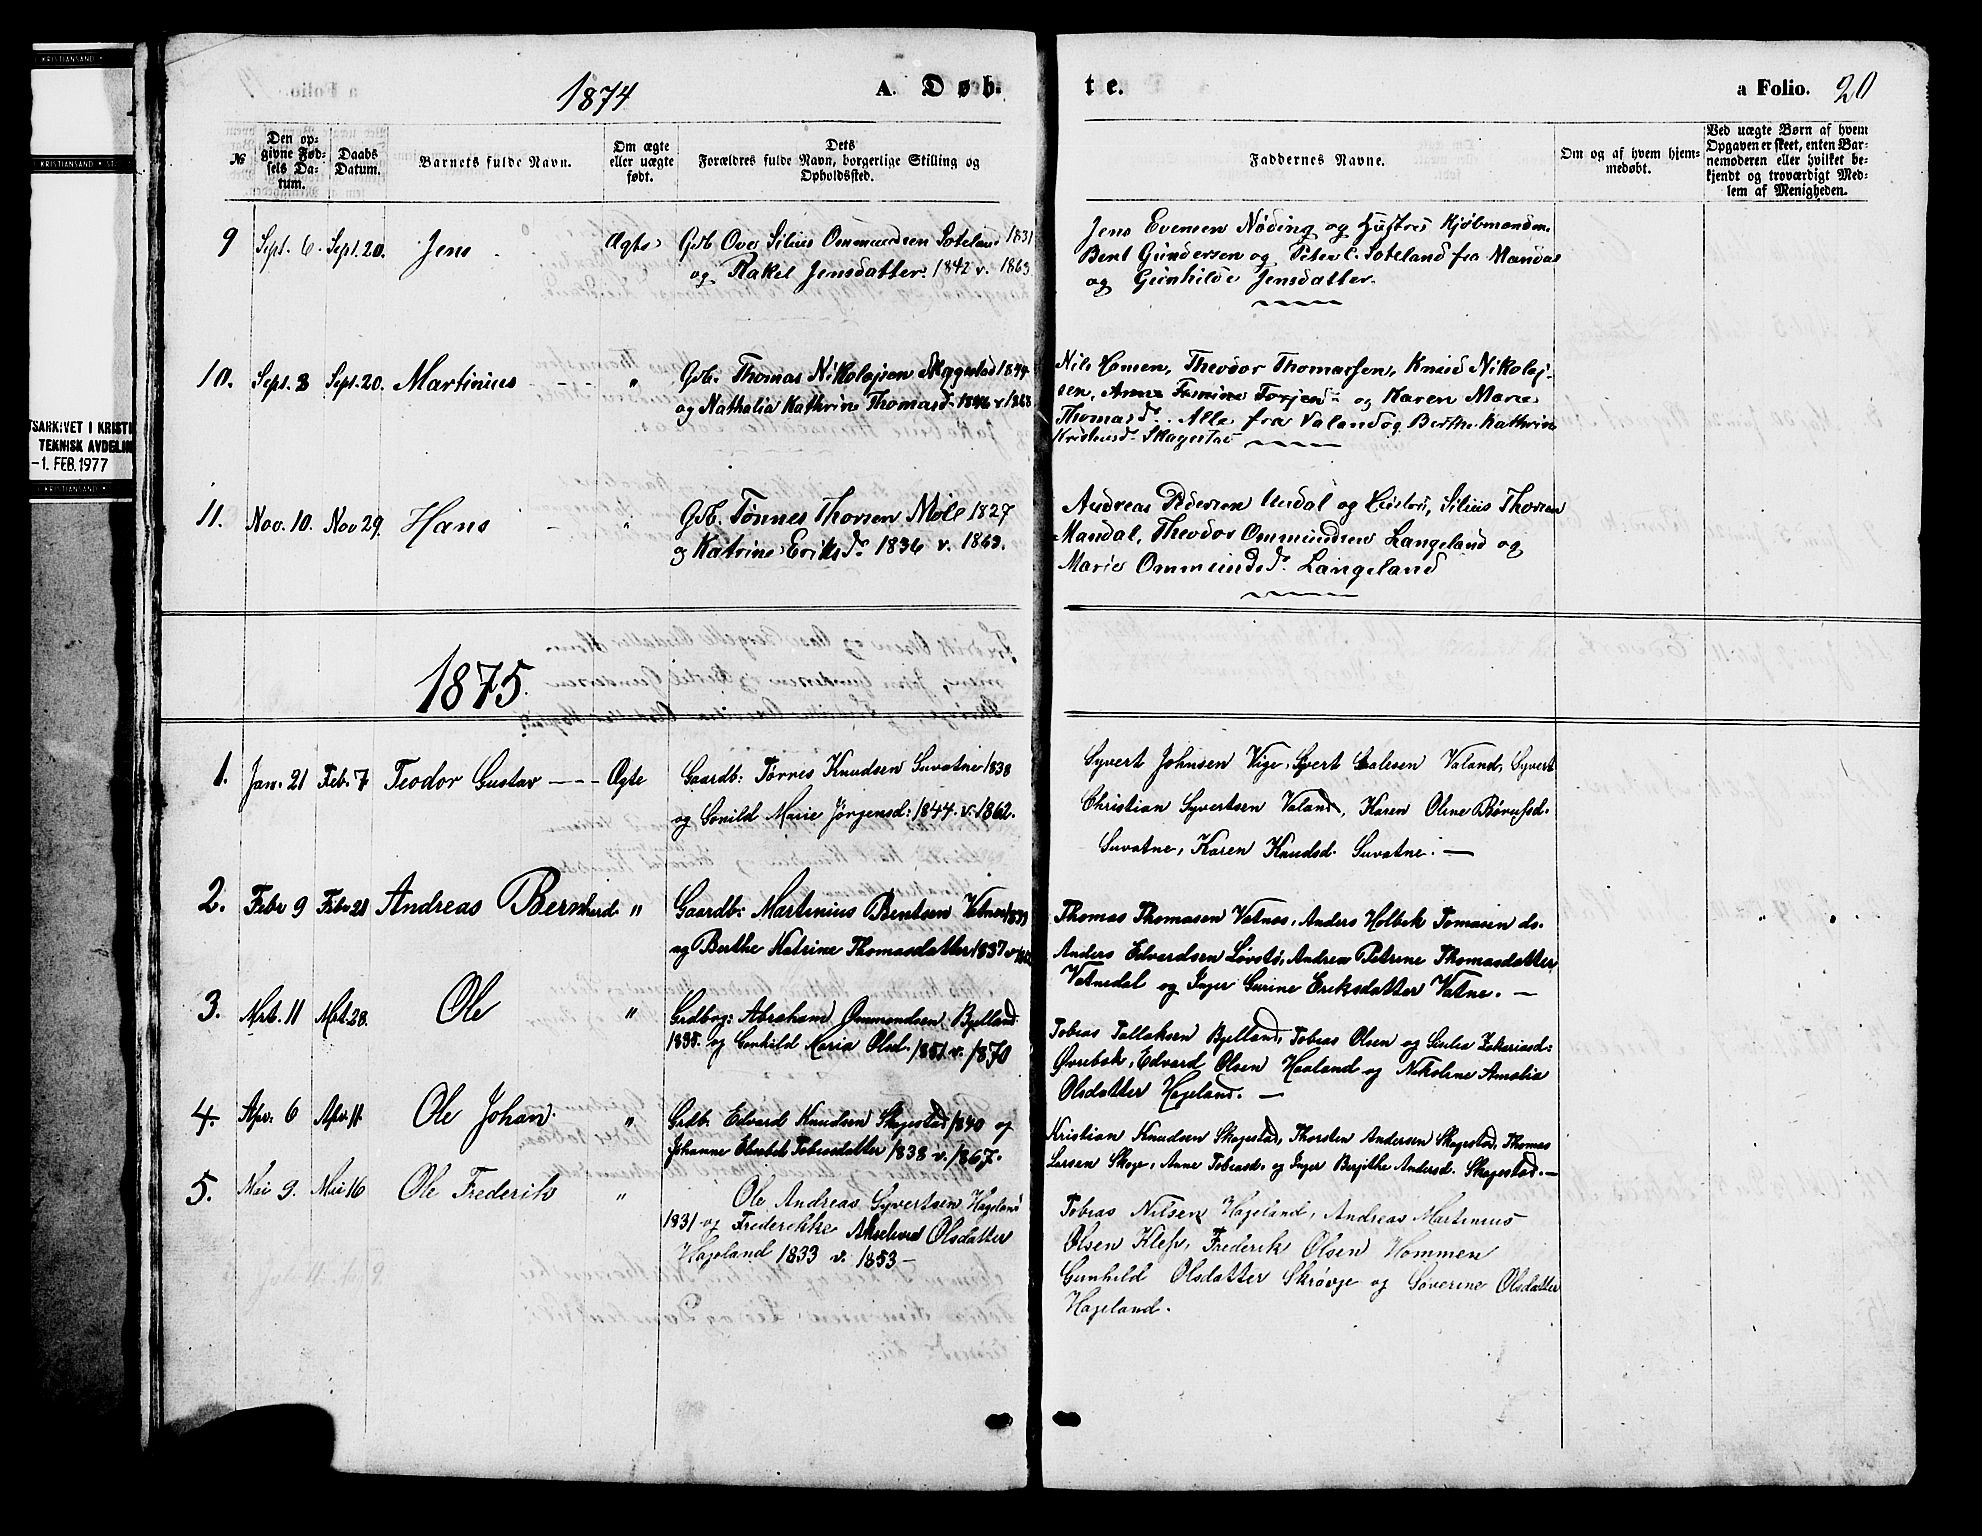 KRISTIANSAND
KRISTIANSAND
TSARKIVET I KRISTI
TEKNISK AVDELIN
-1. FEB. 1977
KRISTIANSAND
1874
A. Døb-
te.
a Folio. 20
№
Den opgivne Fødsels Datum.
Daabs Datum.
Barnets fulde Navn.
Om ægte eller uægte født.
Dets Forældres fulde Navn, borgerlige Stilling og Opholdssted.
Faddernes Navne.
Om og af hvem hjemmedøbt.
Ved uægte Børn af hvem Opgaven er skeet, enten Barnemoderen eller hvilket bekjendt og troværdigt Medlem af Menigheden.
9 Sept. 6. Sept. 20. Jens Ægte Gdb. Ove Silius Ommundsen Soteland 1831
og Rakel Jensdatter 1842 v. 1863
Jens Evensen Nøding og Hustru Kjøbmændene
Bent Gundersen og Peter C. Soteland fra Mandal
og Gunhilde Jensdatter.
10. Sept. 3 Sept. 20. Martinius " Gdb. Thomas Nikolajsen Skagestad 1844
og Nathalia Kathrine Thomasd. 1846 v 1868
Nils Homen, Theodor Thomassen, Knud Nikolaj-
sen, Anne Torjend. og Karen Marie
Thomasd. Alle fra Valand og Berthe Kathrine
Skagestad
11. Nov. 10. Nov 29. Hans " Gdb. Tønnes Thorsen Møll 1827
og Katrine Eriksdr. 1836 v. 1863.
Andreas Pedersen Uudal og Hustru, Silius Thorsen
Mandal, Theodor Ommundsen Langeland og
Marie Ommundsdr. Langeland
1875
1. Jan. 21 Feb. 7 Teodor Gustav --- Ægte Gaardb: Tørres Knudsen Suvatne 1838
og Gonild Marie Jörgensd: 1844. v. 1862.
Syvert Johnsen Vige, Syvert Salesen Valand, Syvert
Christian Syvertsen Valand, Karen Oline
Suvatne, Karen Knudsd. Suvatne. —
2. Febr 9 Febr 21 Andreas Bernherd. " Gaardb: Martinius Bentsen Vatne 1839
og Berthe Katrine Thomasdatter 1837 v
Thomas Thomasen Vatne, Anders Holbek Tomasen do.
Anders Edvardsen Løvstø, Andrea Petrine Thomasdatter
Vatnedal og Inger Gurine Eriksdatter Vatne. —
3. Mrt. 11 Mrt. 28. Ole " Grdbrg: Abraham Ommondsen Bjelland
1835. og Gunhild Maria Olsd. 1851 v. 1870
Tobias Tallaksen Bjelland, Tobias Olsen og Gulia Zakariasd:
Øvrebøk, Edvard Olsen Haaland og Nikoline Amalia
Olsdatter Hageland. —
4. Apr. 6 Apr. 11 Ole Johan. " Grdb. Edvard Knudsen Skagestad 1840 og
Johanne Elisabet Tobiasdatter 1838 v. 1867.
Kristian Knudsen Skagestad, Thorsten Andersen Skagestad, Thomas
Larsen Skoge, Anne Tobiasd. og Inger Berjithe Andersd. Skagestad. —
5. Mai 9. Mai 16 Ole Frederik " Ole Andreas Syvertsen Hageland
1831 og Frederekke Olsdatter
Hageland 1833 v. 1853 —
Tobias Nilsen Hageland, Andreas Martinius
Olsen Klef, Frederik Olsen Hommen
Gunhild Olsdatter Skrøvje og Soverine Olsdatter
Hageland.
Juli 11. Aug 9.